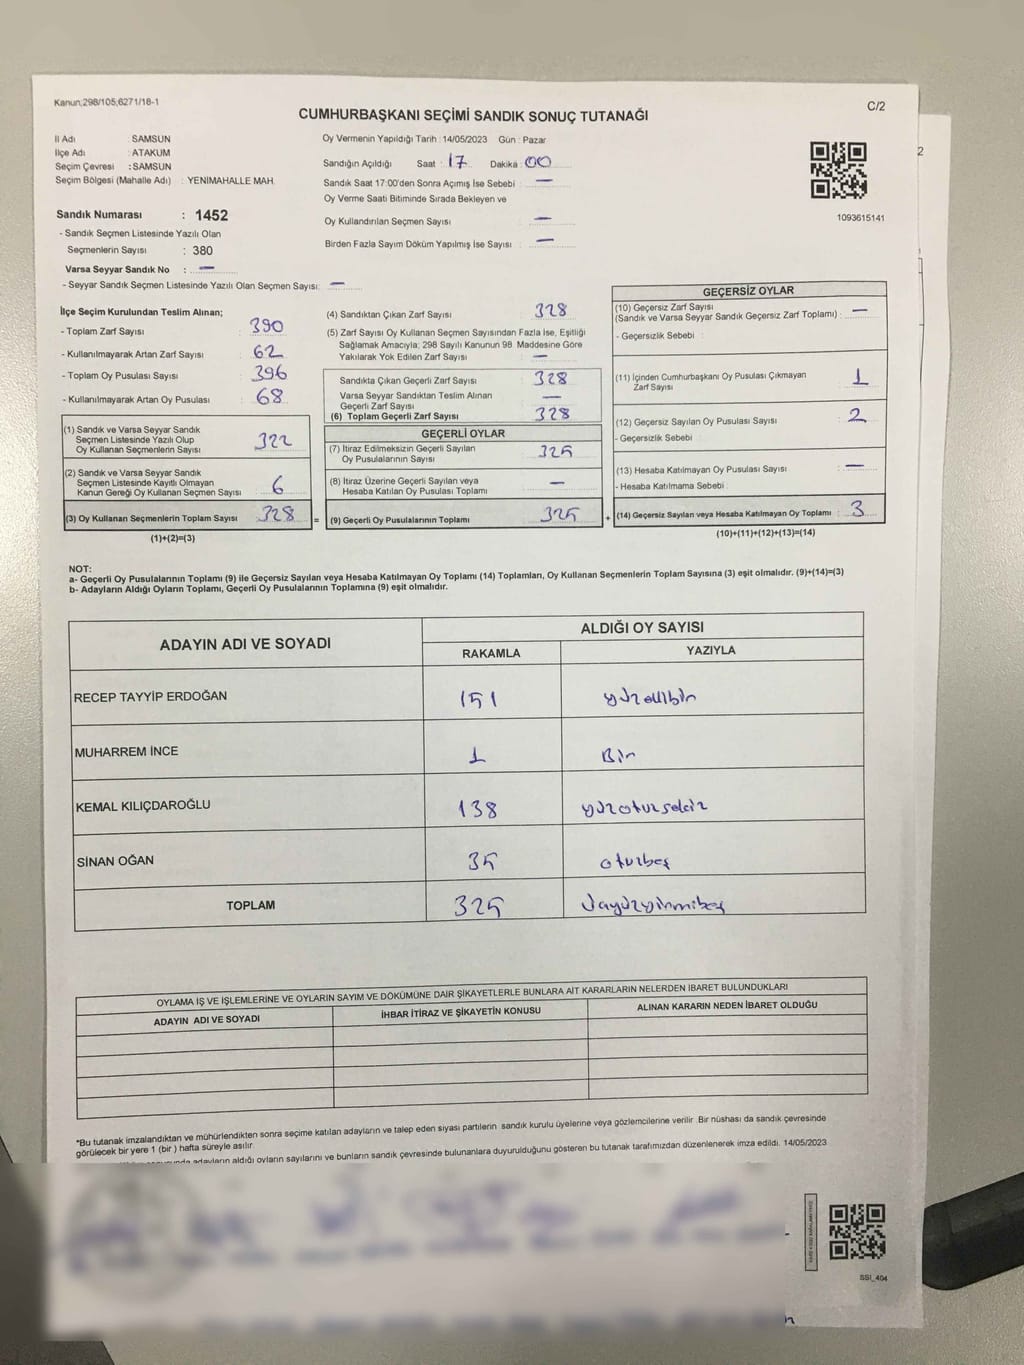 Kanun;298/105,6271/18-1
C/2
CUMHURBAŞKANI SEÇİMİ SANDIK SONUÇ TUTANAĞI
İl Adı : SAMSUN
İlçe Adı : ATAKUM
Seçim Çevresi : SAMSUN
Seçim Bölgesi (Mahalle Adı) : YENİMAHALLE MAH.
Oy Vermenin Yapıldığı Tarih : 14/05/2023 Gün : Pazar
Sandığın Açıldığı Saat : 17 Dakika : 00
Sandık Saat 17:00'den Sonra Açımış İse Sebebi : —
Oy Verme Saati Bitiminde Sırada Bekleyen ve
Oy Kullandırılan Seçmen Sayısı : —
Birden Fazla Sayım Döküm Yapılmış İse Sayısı : —
1093615141
2
Sandık Numarası : 1452
- Sandık Seçmen Listesinde Yazılı Olan
Seçmenlerin Sayısı : 380
Varsa Seyyar Sandık No : —
- Seyyar Sandık Seçmen Listesinde Yazılı Olan Seçmen Sayısı: —
İlçe Seçim Kurulundan Teslim Alınan;
- Toplam Zarf Sayısı : 390
- Kullanılmayarak Artan Zarf Sayısı : 62
- Toplam Oy Pusulası Sayısı : 396
- Kullanılmayarak Artan Oy Pusulası : 68
(1) Sandık ve Varsa Seyyar Sandık
Seçmen Listesinde Yazılı Olup
Oy Kullanan Seçmenlerin Sayısı : 322
(2) Sandık ve Varsa Seyyar Sandık
Seçmen Listesinde Kayıtlı Olmayan
Kanun Gereği Oy Kullanan Seçmen Sayısı : 6
(3) Oy Kullanan Seçmenlerin Toplam Sayısı : 328
(1)+(2)=(3)
(4) Sandıktan Çıkan Zarf Sayısı : 328
(5) Zarf Sayısı Oy Kullanan Seçmen Sayısından Fazla İse, Eşitliği
Sağlamak Amacıyla; 298 Sayılı Kanunun 98. Maddesine Göre
Yakılarak Yok Edilen Zarf Sayısı : —
Sandıkta Çıkan Geçerli Zarf Sayısı : 328
Varsa Seyyar Sandıktan Teslim Alınan
Geçerli Zarf Sayısı : —
(6) Toplam Geçerli Zarf Sayısı : 328
GEÇERLİ OYLAR
(7) İtiraz Edilmeksizin Geçerli Sayılan
Oy Pusulalarının Sayısı : 325
(8) İtiraz Üzerine Geçerli Sayılan veya
Hesaba Katılan Oy Pusulası Toplamı : —
= (9) Geçerli Oy Pusulalarının Toplamı : 325
GEÇERSİZ OYLAR
(10) Geçersiz Zarf Sayısı
(Sandık ve Varsa Seyyar Sandık Geçersiz Zarf Toplamı) : —
- Geçersizlik Sebebi :
(11) İçinden Cumhurbaşkanı Oy Pusulası Çıkmayan
Zarf Sayısı : 1
(12) Geçersiz Sayılan Oy Pusulası Sayısı : 2
- Geçersizlik Sebebi :
(13) Hesaba Katılmayan Oy Pusulası Sayısı : —
- Hesaba Katılmama Sebebi :
+ (14) Geçersiz Sayılan veya Hesaba Katılmayan Oy Toplamı : 3
(10)+(11)+(12)+(13)=(14)
NOT:
a- Geçerli Oy Pusulalarının Toplamı (9) ile Geçersiz Sayılan veya Hesaba Katılmayan Oy Toplamı (14) Toplamları, Oy Kullanan Seçmenlerin Toplam Sayısına (3) eşit olmalıdır. (9)+(14)=(3)
b- Adayların Aldığı Oyların Toplamı, Geçerli Oy Pusulalarının Toplamına (9) eşit olmalıdır.
ADAYIN ADI VE SOYADI
ALDIĞI OY SAYISI
RAKAMLA YAZIYLA
RECEP TAYYİP ERDOĞAN 151 yüzellibir
MUHARREM İNCE 1 Bir
KEMAL KILIÇDAROĞLU 138 yüzotuzsekiz
SİNAN OĞAN 35 otuzbeş
TOPLAM 325 üçyüzyirmibeş
OYLAMA İŞ VE İŞLEMLERİNE VE OYLARIN SAYIM VE DÖKÜMÜNE DAİR ŞİKAYETLERLE BUNLARA AİT KARARLARIN NELERDEN İBARET BULUNDUKLARI
ADAYIN ADI VE SOYADI İHBAR İTİRAZ VE ŞİKAYETİN KONUSU ALINAN KARARIN NEDEN İBARET OLDUĞU
*Bu tutanak imzalandıktan ve mühürlendikten sonra seçime katılan adayların ve talep eden siyasi partilerin sandık kurulu üyelerine veya gözlemcilerine verilir. Bir nüshası da sandık çevresinde
görülecek bir yere 1 (bir ) hafta süreyle asılır.
adayların aldığı oyların sayılarını ve bunların sandık çevresinde bulunanlara duyurulduğunu gösteren bu tutanak tarafımızdan düzenlenerek imza edildi. 14/05/2023
SSI_404